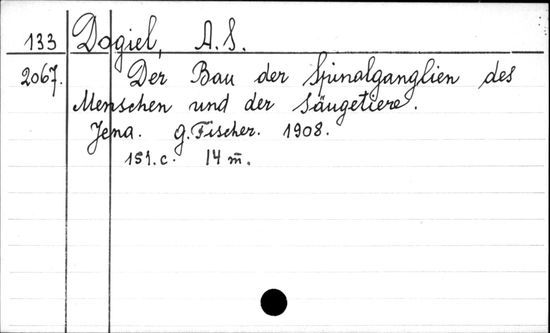 133 Dogiel, A.S.
2067. Der Bau der Spinalganglien des
Menschen und der Säugetiere.
Jena. G. Fischer. 1908.
151. c. 14 m̄.